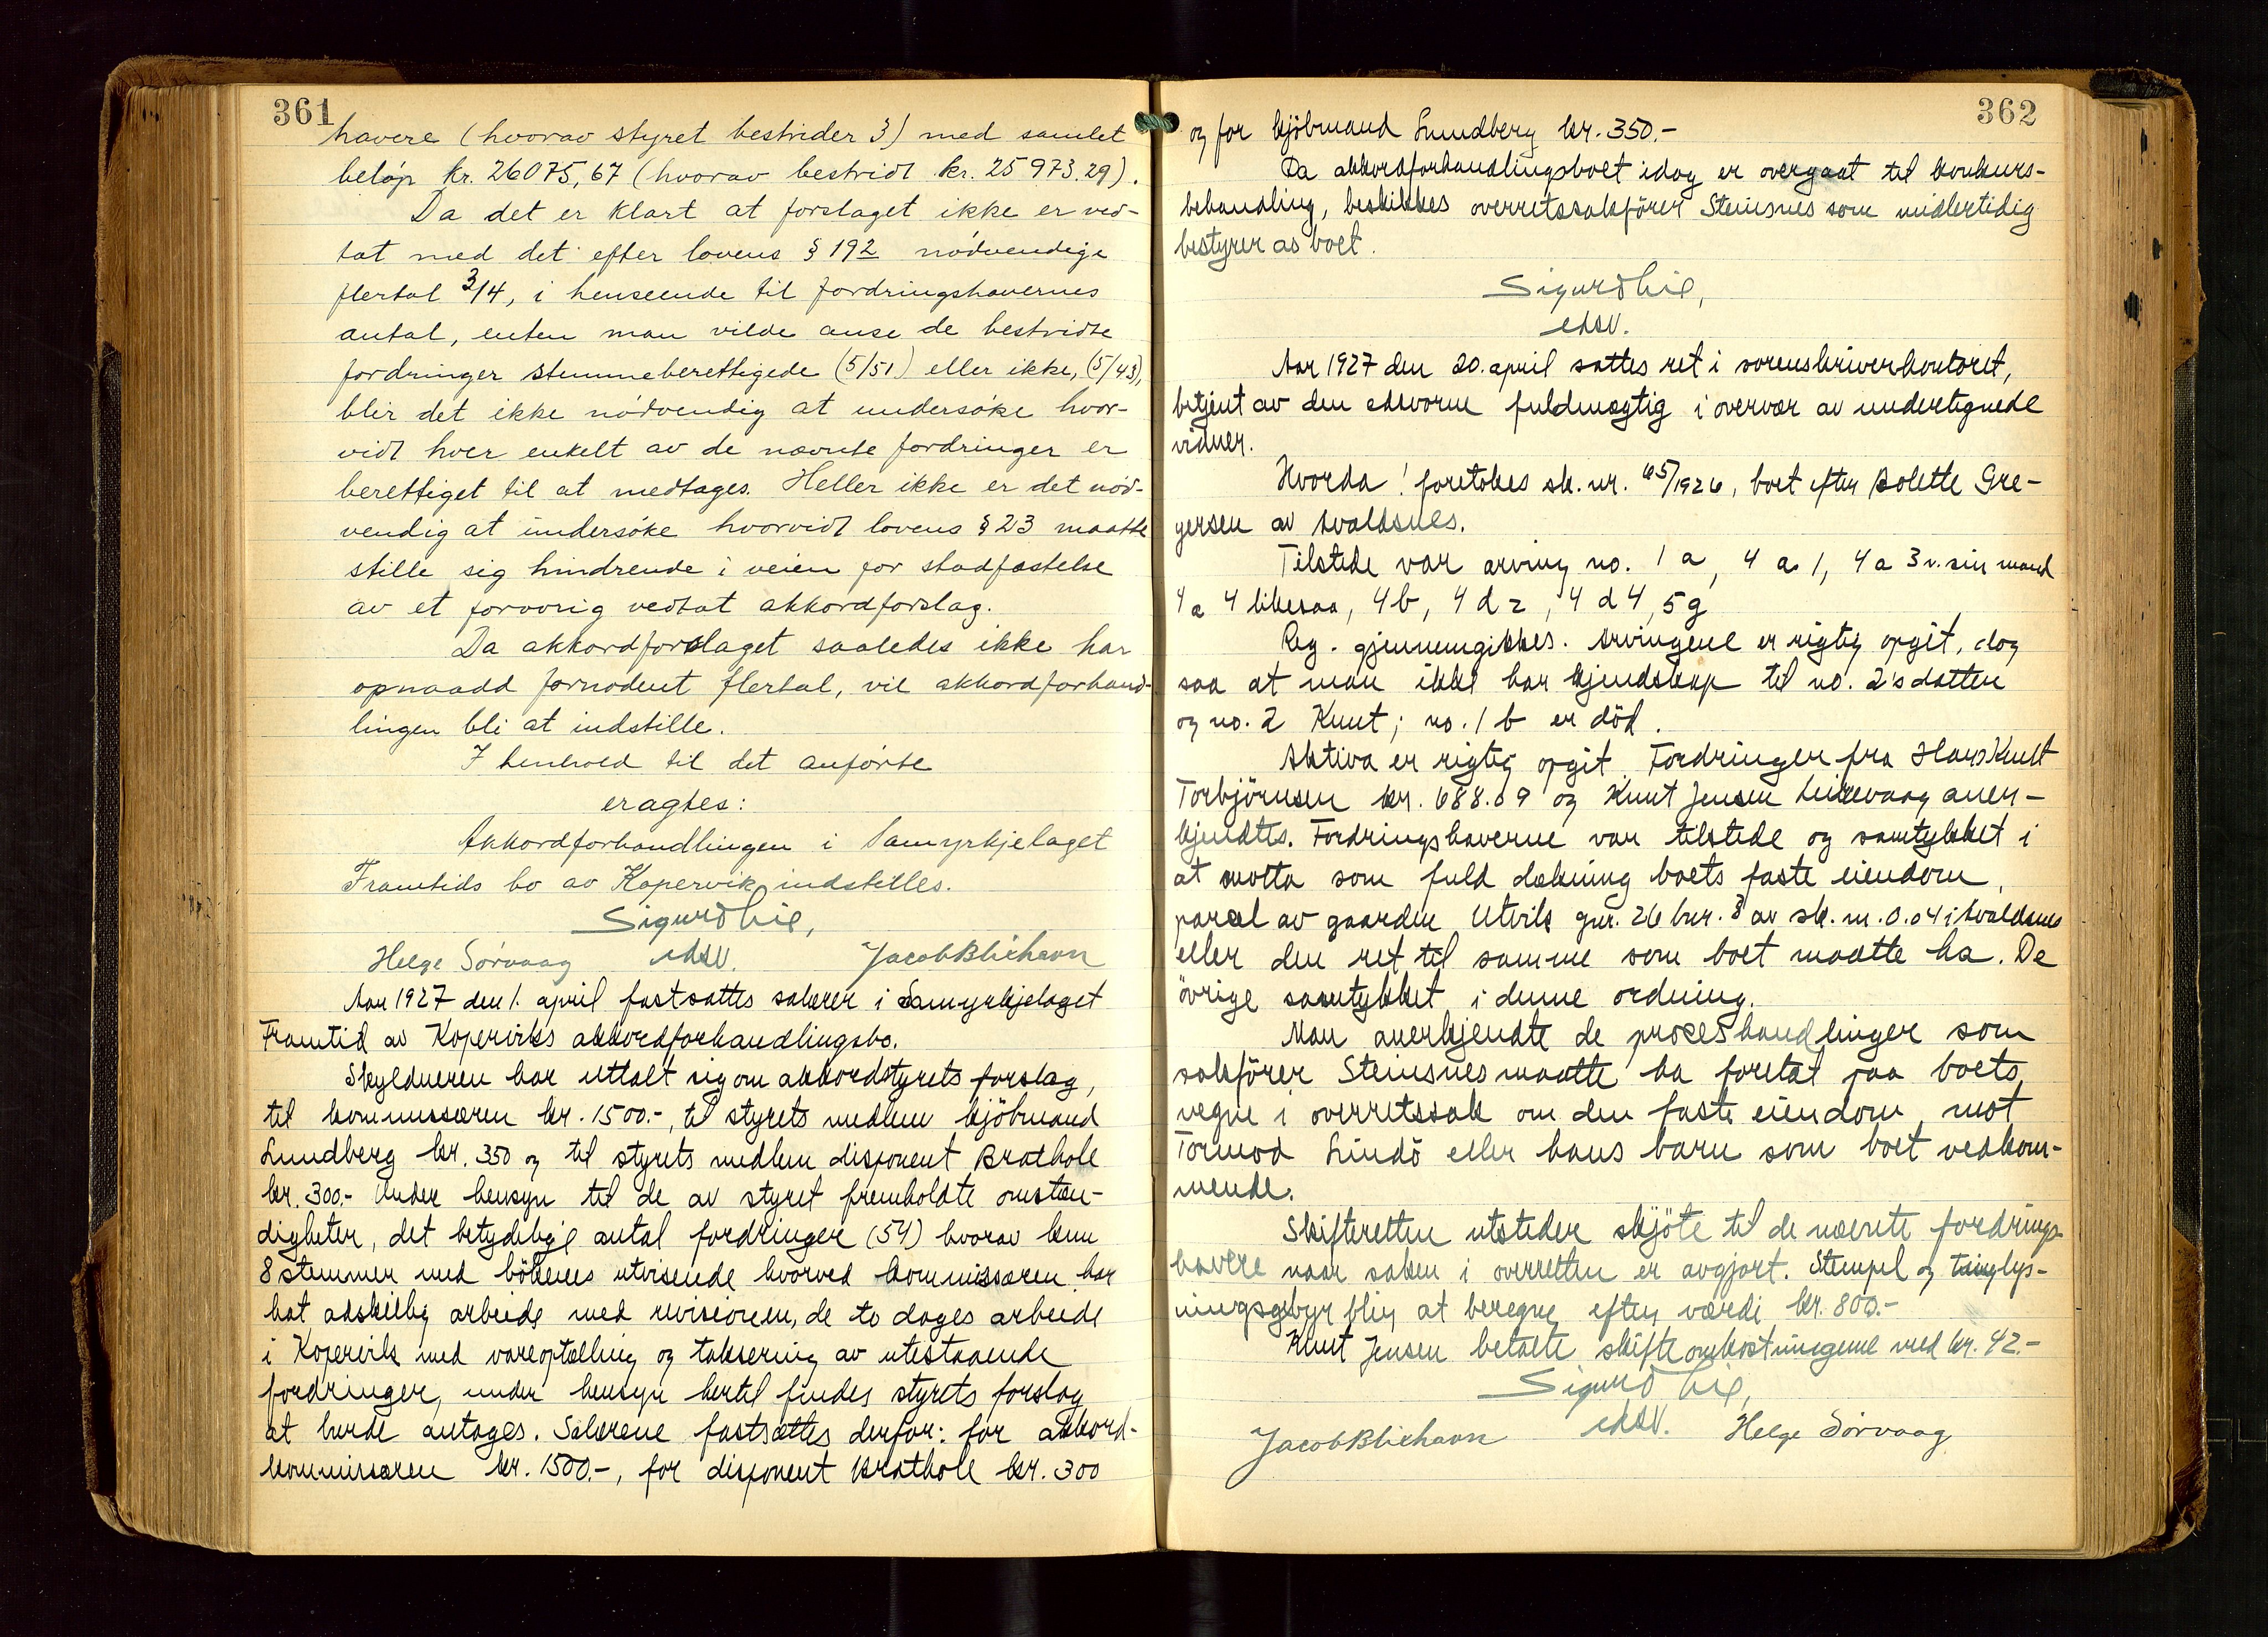 361
havere (hvorav styret bestrider 3) med samlet
beløp kr. 26075,67 (hvorav bestridt kr. 25973.29).
Da det er klart at forslaget ikke er ved-
tat med det efter lovens § 192 nødvendige
flertal 3/4, i henseende til fordringshavernes
antal, enten man vilde anse de bestridte
fordringer stemmeberettigede (5/51) eller ikke, (5/43),
blir det ikke nødvendig at undersøke hvor-
vidt hver enkelt av de nævnte fordringer er
berettiget til at medtages. Heller ikke er det nød-
vendig at undersøke hvorvidt lovens § 23 maatte
stille sig hindrende i veien for stadfæstelse
av et forøvrig vedtat akkordforslag.
Da akkordforslaget saaledes ikke har
opnaadd fornødent flertal, vil akkordforhand-
lingen bli at indstille.
I henhold til det anførte
eragtes:
Akkordforhandlingen i Samyrkjelaget
Framtids bo av Kopervik indstilles.
Sigurd Lie,
Helge Sørvaag edsv. Jacob Blikhavn
Aar 1927 den 1. april fastsattes salærer i Samyrkjelaget
Framtid av Koperviks akkordforhandlingsbo.
Skyldneren har uttalt sig om akkordstyrets forslag,
til kommissæren kr. 1500.-, til styrets medlem kjöbmand
Lundberg kr. 350 og til styrets medlem disponent Brathole
kr. 300.- Under hensyn til de av styret fremholdte omstæn-
digheter, det betydelige antal fordringer (54) hvorav kun
8 stemmer med bökenes utvisende hvorved kommissæren har
hat adskillig arbeide med revisionen, de to dages arbeide
i Kopervik med vareoptælling og taksering av utestaaende
fordringer, under hensyn hertil findes styrets forslag
at burde antages. Salærene fastsættes derfor: for akkord-
kommissæren kr. 1500.-, for disponent Brathole kr. 300
362
og for kjöbmand Lundberg kr. 350.-
Da akkordforhandlingsboet idag er overgaat til konkurs-
behandling, beskikkes overretssakförer Steinsnes som midlertidig
bestyrer av boet.
Sigurd Lie,
edsv.
Aar 1927 den 20. april sattes ret i sorenskriverkontoret,
betjent av den edsvorne fuldmægtig i overvær av undertegnede
vidner.
Hvorda! foretokes sk. nr. 65/1926, boet efter Bolette Gre-
gersen av Avaldsnes.
Tilstede var arving no. 1 a, 4 a 1, 4 a 3 v. sin mand
4 a 4 likesaa, 4 b, 4 d 2, 4 d 4, 5 g
Reg. gjennemgikkes. Arvingene er rigtig opgit, dog
saa at man ikke har kjendskap til no. 2's datter
og no. 2 Knut; no. 1 b er död.
Aktiva er rigtig opgit Fordringer fra Hans Knut
Torbjörnsen kr. 688.09 og Knut Jensen aner-
kjendtes. Fordringshaverne var tilstede og samtykket i
at motta som fuld dækning boets faste eiendom,
parcel av gaarden Utvik gnr. 26 bnr. 8 av sk. m. 0.04 i Avaldsnes
eller den ret til samme som boet maatte ha. De
övrige samtykket i denne ordning.
Man anerkjendte de proceshandlinger som
sakförer Steinsnes maatte ha foretat paa boets
vegne i overretssak om den faste eiendom mot
Tormod Lindö eller hans barn som boet vedkom-
mende.
Skifteretten utsteder skjöte til de nævnte fordrings-
havere naar saken i overretten er avgjort. Stempel og tinglys-
ningsgebyr blir at beregne efter værdi kr. 800.-
Knut Jensen betalte skifteomkostningene med kr. 42.-
Sigurd Lie,
Jacob Blikhavn edsv. Helge Sørvaag